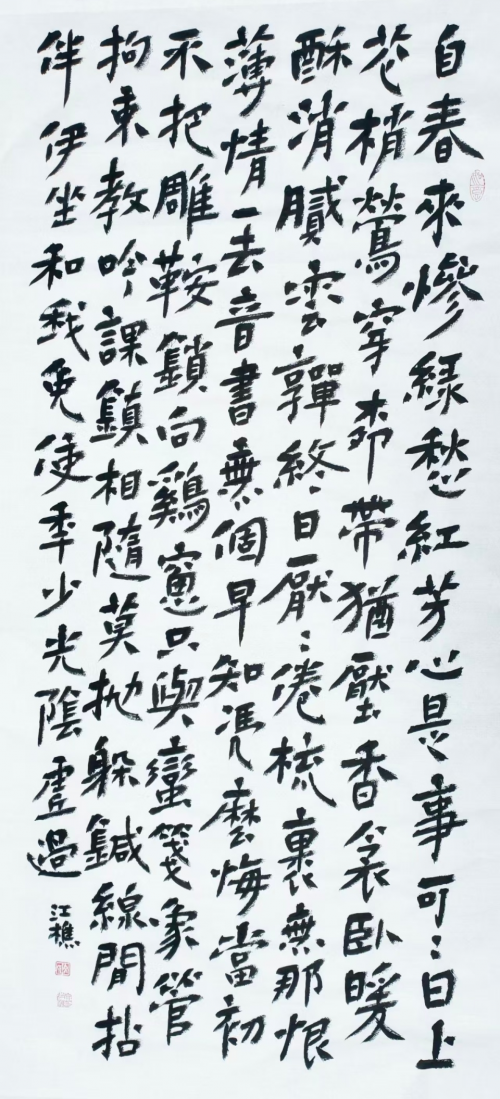 自春來慘綠愁紅芳心是事可〻日上
花梢鶯穿柳帶猶壓香衾臥暖
酥消膩雲嚲終日厭〻倦梳裹無那恨
薄情一去音書無個早知恁麼悔當初
不把雕鞍鎖向鷄窻只與蠻箋象管
拘束教吟課鎮相隨莫拋躲鍼線閒拈
伴伊坐和我免使年少光陰虛過
江樵